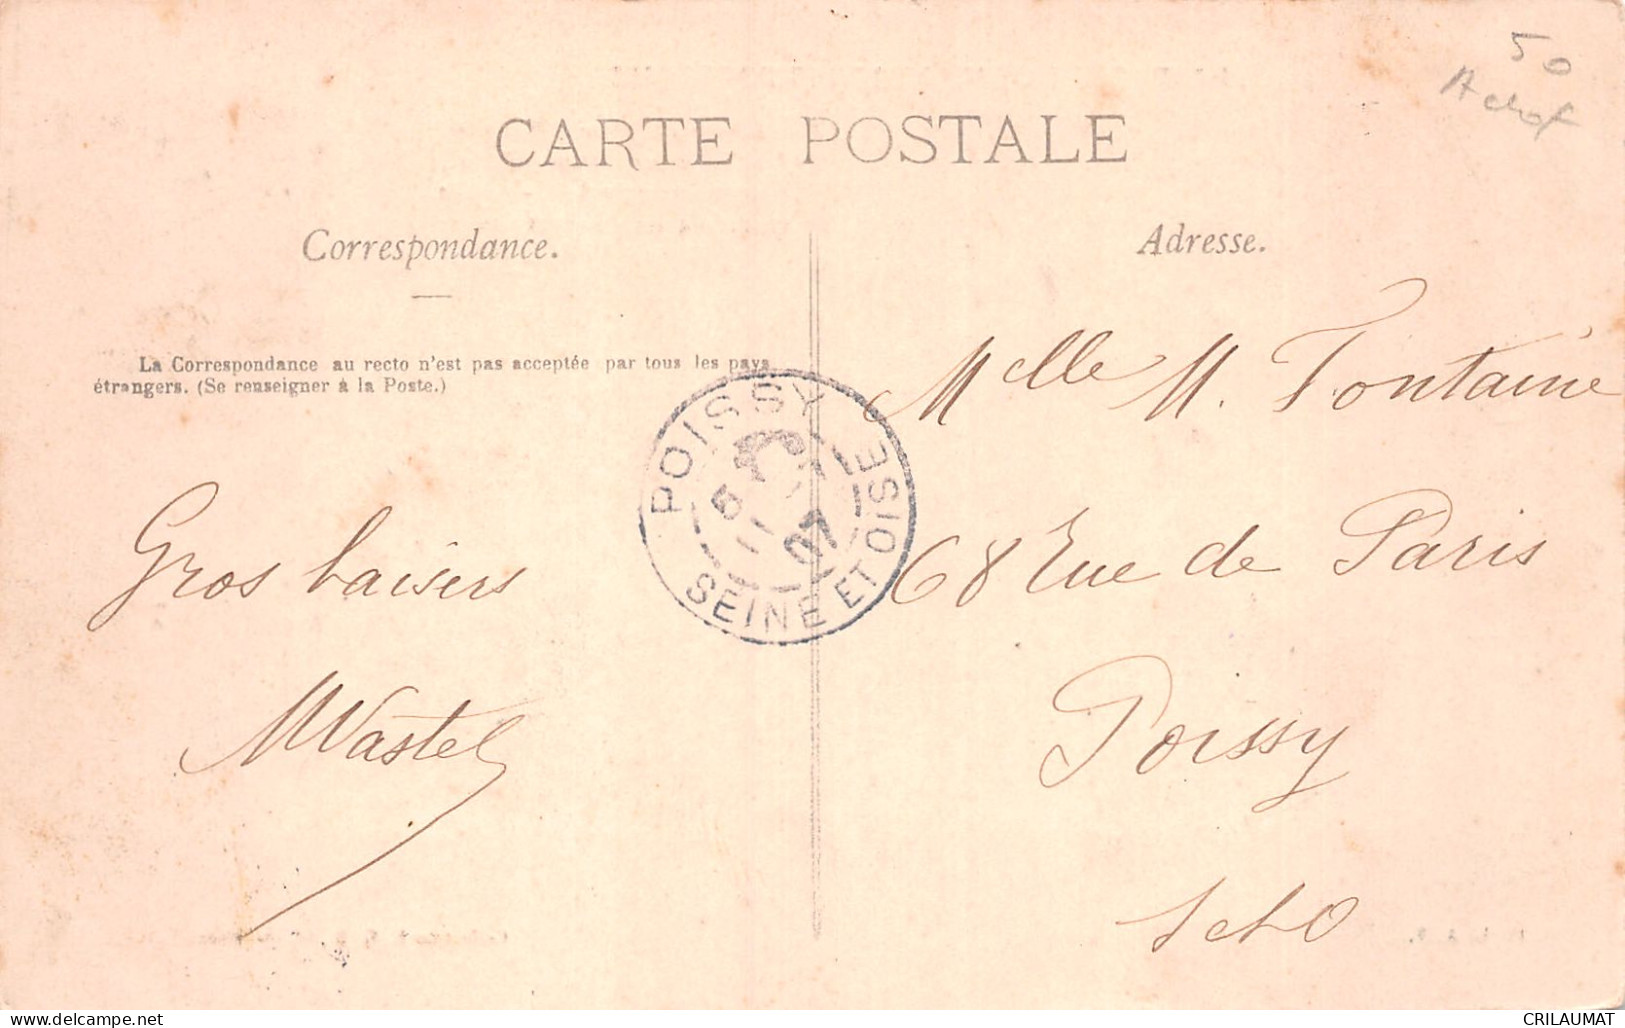 50
CARTE POSTALE
Correspondance.
Adresse.
La Correspondance au recto n'est pas acceptée par tous les pays
étrangers. (Se renseigner à la Poste.)
Melle M. Fontaine
POISSY
5
11
07
SEINE ET OISE
68 Rue de Paris
Gros baisers
MWastel
Poissy
S et O
CRILAUMAT